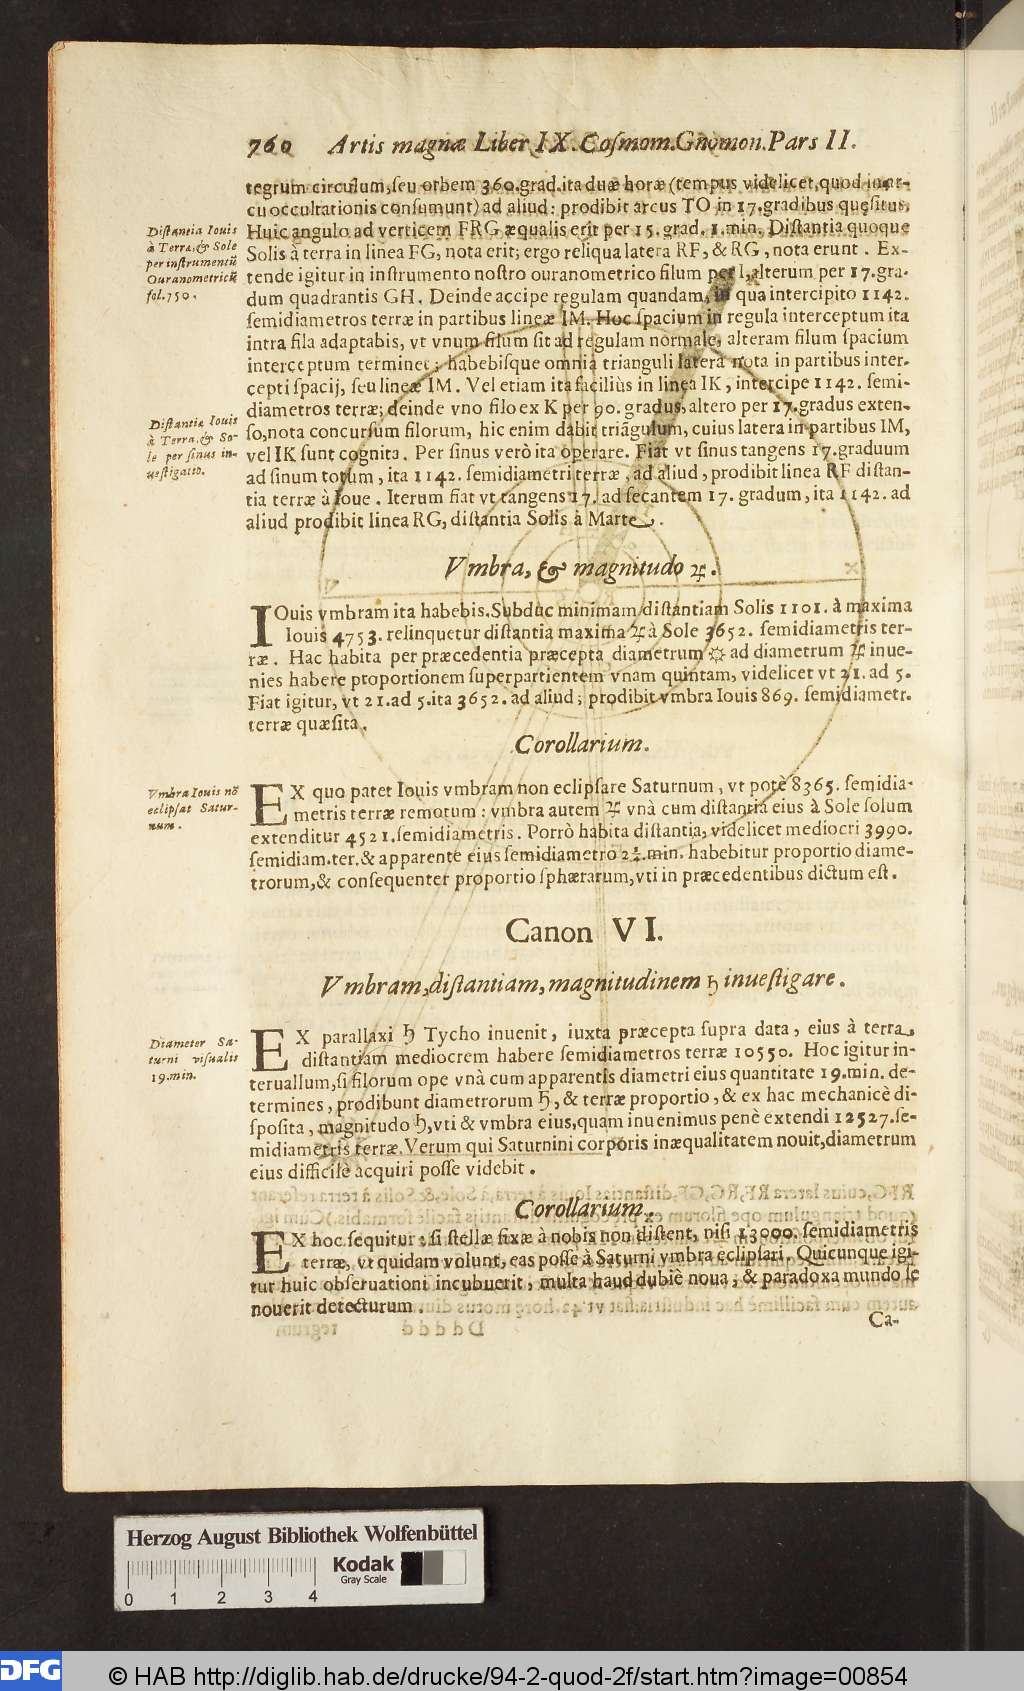 760 Artis magnæ Liber IX. Cosmom. Gnomon. Pars II.
tegrum circulum, seu orbem 360. grad. ita duæ horæ (tempus videlicet, quod in ar-
cu occultationis consumunt) ad aliud: prodibit arcus TO in 17. gradibus quęsitus.
Huic angulo ad verticem FRG æqualis erit per 15. grad. 1. min. Distantia quoque
Solis à terra in linea FG, nota erit; ergo reliqua latera RF, & RG, nota erunt. Ex-
tende igitur in instrumento nostro ouranometrico filum per I, alterum per 17. gra-
dum quadrantis GH. Deinde accipe regulam quandam, in qua intercipito 1142.
semidiametros terræ in partibus lineæ IM. Hoc spacium in regula interceptum ita
intra fila adaptabis, vt vnum filum sit ad regulam normale, alteram filum spacium
interceptum terminet; habebisque omnia trianguli latera nota in partibus inter-
cepti spacij, seu lineæ IM. Vel etiam ita faciliùs in linea IK, intercipe 1142. semi-
diametros terræ; deinde vno filo ex K per 90. gradus, altero per 17. gradus exten-
so, nota concursum filorum, hic enim dabit triãgulum, cuius latera in partibus IM,
vel IK sunt cognita. Per sinus verò ita operare. Fiat vt sinus tangens 17. graduum
ad sinum totum, ita 1142. semidiametri terræ, ad aliud, prodibit linea RF distan-
tia terræ à Ioue. Iterum fiat vt tangens 17. ad secantem 17. gradum, ita 1142. ad
aliud prodibit linea RG, distantia Solis à Marte.
Distantia Iouis
à Terra, & Sole
per instrumentũ
Ouranometricũ
fol. 750.
Distantia Iouis
à Terra, & So-
le per sinus in-
uestigatio.
Vmbra, & magnitudo ♃.
IOuis vmbram ita habebis. Subduc minimam distantiam Solis 1101. à maxima
Iouis 4753. relinquetur distantia maxima ♃ à Sole 3652. semidiametris ter-
ræ. Hac habita per præcedentia præcepta diametrum ☼ ad diametrum ♃ inue-
nies habere proportionem superpartientem vnam quintam, videlicet vt 21. ad 5.
Fiat igitur, vt 21. ad 5. ita 3652. ad aliud; prodibit vmbra Iouis 869. semidiametr.
terræ quæsita.
Corollarium.
EX quo patet Iouis vmbram non eclipsare Saturnum, vt potè 8365. semidia-
metris terræ remotum: vmbra autem ♃ vnà cum distantia eius à Sole solum
extenditur 4521. semidiametris. Porrò habita distantia, videlicet mediocri 3990.
semidiam. ter. & apparente eius semidiametro 2½. min. habebitur proportio diame-
trorum, & consequenter proportio sphærarum, vti in præcedentibus dictum est.
Vmbra Iouis nõ
eclipsat Satur-
num.
Canon VI.
Vmbram, distantiam, magnitudinem ♄ inuestigare.
EX parallaxi ♄ Tycho inuenit, iuxta præcepta supra data, eius à terra
distantiam mediocrem habere semidiametros terræ 10550. Hoc igitur in-
teruallum, si filorum ope vnà cum apparentis diametri eius quantitate 19. min. de-
termines, prodibunt diametrorum ♄, & terræ proportio, & ex hac mechanicè di-
sposita, magnitudo ♄, vti & vmbra eius, quam inuenimus penè extendi 12527. se-
midiametris terræ. Verum qui Saturnini corporis inæqualitatem nouit, diametrum
eius difficilè acquiri posse videbit.
Diameter Sa-
turni visualis
19. min.
Corollarium.
EX hoc sequitur; si stellæ fixæ à nobis non distent, nisi 13000. semidiametris
terræ, vt quidam volunt, eas posse à Saturni vmbra eclipsari. Quicunque igi-
tur huic obseruationi incubuerit, multa haud dubiè noua, & paradoxa mundo se
nouerit detecturum.
Ca-
Herzog August Bibliothek Wolfenbüttel
Kodak
Gray Scale
0 1 2 3 4
DFG
© HAB http://diglib.hab.de/drucke/94-2-quod-2f/start.htm?image=00854